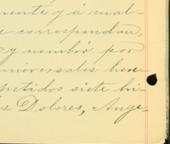 mente y á cual-
corresponden,
y nombró por
universales here-
petidos siete hi-
s Dolores, Ange-